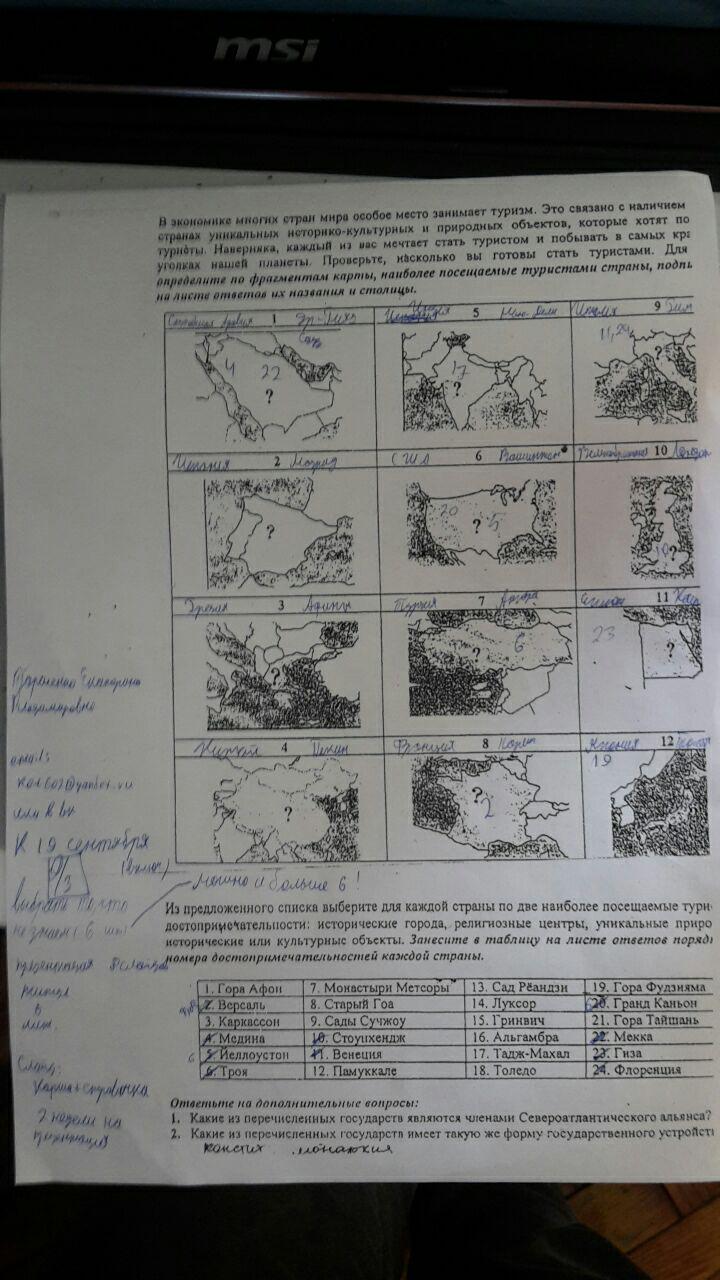 msi
В экономике многих стран мира особое место занимает туризм. Это связано с наличием
странах уникальных историко-культурных и природных объектов, которые хотят по
туристы. Наверняка, каждый из вас мечтает стать туристом и побывать в самых кра
уголках нашей планеты. Проверьте, насколько вы готовы стать туристами. Для
определите по фрагментам карты, наиболее посещаемые туристами страны, подпи
на листе ответов их названия и столицы.
1 Эр-Рияд
Индия 5 Нью-Дели
Италия 9 Рим
4 22 ?
17 ?
11,24 ?
Испания 2 Мадрид
США 6 Вашингтон
Великобритания 10 Лондон
?
20 ? 5
10 ?
Греция 3 Афины
Турция 7 Анкара
Египет 11 Каир
?
? 6
23 ?
Китай 4 Пекин
Франция 8 Париж
Япония 12
?
? 2
19
Екатерина
Владимировна
email:
или в вк
К 19 сентября
можно и больше 6!
Из предложенного списка выберите для каждой страны по две наиболее посещаемые тури
достопримечательности: исторические города, религиозные центры, уникальные приро
исторические или культурные объекты. Занесите в таблицу на листе ответов поряд
номера достопримечательностей каждой страны.
1. Гора Афон 7. Монастыри Метеоры 13. Сад Рёандзи 19. Гора Фудзияма
2. Версаль 8. Старый Гоа 14. Луксор 20. Гранд Каньон
3. Каркассон 9. Сады Сучжоу 15. Гринвич 21. Гора Тайшань
4. Медина 10. Стоунхендж 16. Альгамбра 22. Мекка
5. Йеллоустон 11. Венеция 17. Тадж-Махал 23. Гиза
6. Троя 12. Памуккале 18. Толедо 24. Флоренция
Слайд:
карта + справочка
2 недели на
Ответьте на дополнительные вопросы:
1. Какие из перечисленных государств являются членами Североатлантического альянса?
2. Какие из перечисленных государств имеет такую же форму государственного устройст
констит. монархия